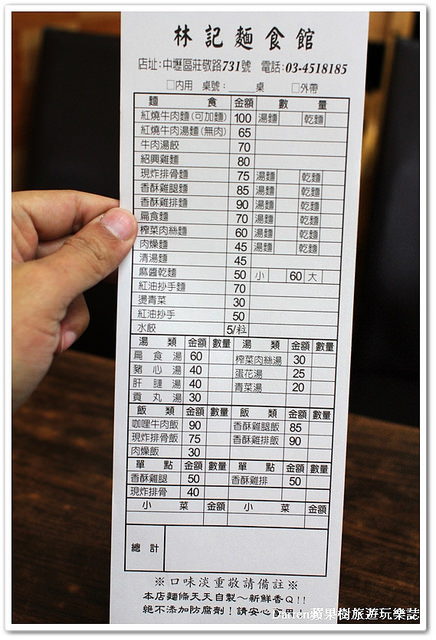 林記麵食館
店址:中壢區莊敬路731號 電話:03-4518185
□內用 桌號:____桌 □外帶
麵食 金額 數量
紅燒牛肉麵(可加麵) 100 湯麵 乾麵
紅燒牛肉湯麵(無肉) 65
牛肉湯餃 70
紹興雞麵 80
現炸排骨麵 75 湯麵 乾麵
香酥雞腿麵 85 湯麵 乾麵
香酥雞排麵 90 湯麵 乾麵
扁食麵 70 湯麵 乾麵
榨菜肉絲麵 60 湯麵 乾麵
肉燥麵 45 湯麵 乾麵
清湯麵 45
麻醬乾麵 50 小 60 大
紅油抄手麵 70
燙青菜 30
紅油抄手 50
水餃 5/粒
湯類 金額 數量 湯類 金額 數量
扁食湯 60 榨菜肉絲湯 30
豬心湯 40 蛋花湯 25
肝腱湯 40 青菜湯 20
貢丸湯 30
飯類 金額 數量 飯類 金額 數量
咖哩牛肉飯 90 香酥雞腿飯 85
現炸排骨飯 75 香酥雞排飯 90
肉燥飯 30
單點 金額 數量 單點 金額 數量
香酥雞腿 50 香酥雞排 50
現炸排骨 40
小菜 金額 數量 小菜 金額 數量
總計
※口味淡重敬請備註※
本店麵條天天自製~新鮮香Q!!
絕不添加防腐劑!請安心食用
Darren蘋果樹旅遊玩樂誌